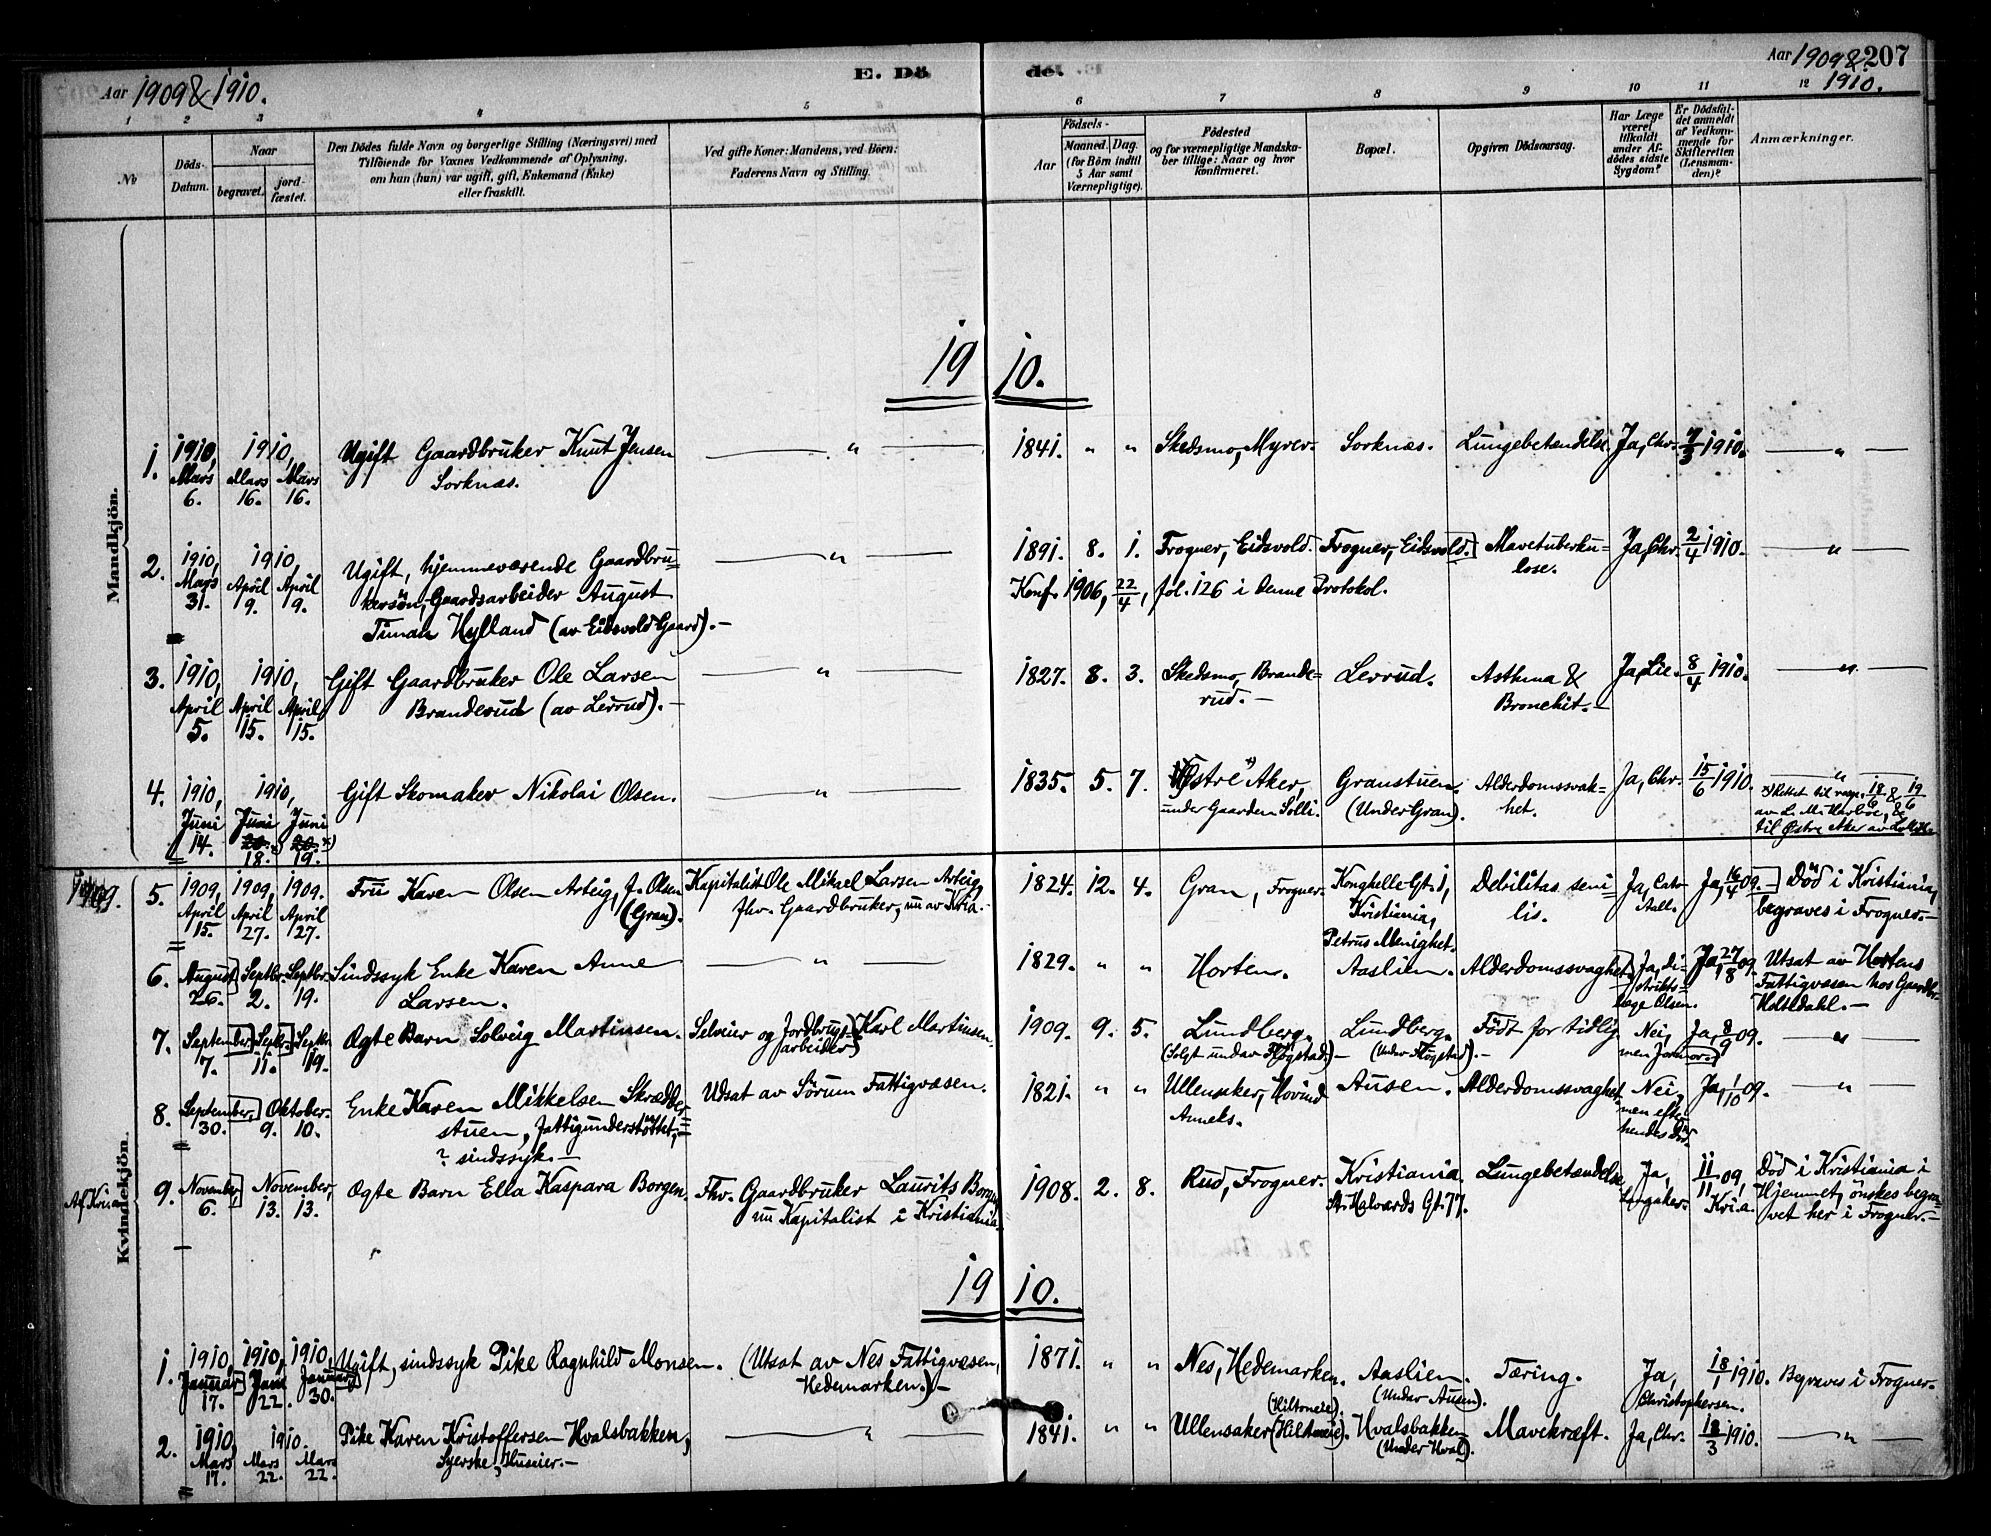 Aar 1909 & 1910.
E. Döde.
Aar 1909 & 207
1910.
1 2 3 4 5 6 7 8 9 10 11 12
No
Döds-Datum.
Naar
begravet.
jordfæstet.
Den Dödes fulde Navn og borgerlige Stilling (Næringsvei) med
Tilföiende for Voxnes Vedkommende af Oplysning,
om han (hun) var ugift, gift, Enkemand (Enke)
eller fraskilt.
Ved gifte Koner: Mandens, ved Börn:
Faderens Navn og Stilling.
Födsels-
Aar
Maaned. Dag.
(for Börn indtil
5 Aar samt
Værnepligtige).
Födested
og for værnepligtige Mandska-
ber tillige: Naar og hvor
konfirmeret.
Bopæl.
Opgiven Dödsaarsag.
Har Læge
været
tilkaldt
under Af-
dödes sidste
Sygdom?
Er Dödsfal-
det anmeldt
af Vedkom-
mende for
Skifteretten
(Lensman-
den)?
Anmærkninger.
Mandkjön.
1910.
1. 1910, Mars 6. 1910, Mars 16. Mars 16. Ugift Gaardbruker Knut Jensen Sorknæs. " 1841. " " Skedsmo, Myrer. Sorknæs. Lungebetændelse Ja, Chr. 7/3 1910. "
2. 1910, Mars 31. 1910, April 9. April 9. Ugift, hjemmeværende Gaardbru=
kersön, Gaardsarbeider August
Timan Hylland (av Eidsvold Gaard). " 1891. 8. 1. Frogner, Eidsvold. Frogner, Eidsvold. Mavetuberku=
lose. Ja, Chr. 2/4 1910. "
Konf. 1906, 22/4, fol. 126 i denne Protokol.
3. 1910, April 5. 1910, April 15. April 15. Gift Gaardbruker Ole Larsen
Branderud (av Lerrud). " 1827. 8. 3. Skedsmo, Brande=
rud. Lerrud. Asthma &
Bronchit. Ja, Lie. 8/4 1910. "
4. 1910, Juni 14. 1910, Juni 20. 18. Juni 20. 19. Gift Skomaker Nikolai Olsen. " 1835. 5. 7. Østre Aker,
under Gaarden Solli. Granstuen.
(Under Gran). Alderdomssvak=
het. Ja, Chr. 15/6 1910. "
til 18/6 & 19/6
av L. M.
til Østre Aker av
Kvindekjön.
1909.
5. 1909, April 15. 1909, April 27. 1909. April 27. Fru Karen Olsen Arteig, f. Olsen
(Gran). Kapitalist Ole Mikael Larsen Arteig,
fhv. Gaardbruker, nu av Kria. 1824. 12. 4. Gran, Frogner. Konghelle Gt. 1,
Kristiania,
Petrus Menighet. Debilitas seni
lis. Ja, Aall. Ja, 16/4 09. Död i Kristiania,
begraves i Frogner.
6. August 26. Septbr. 2. Septbr. 19. Sindssyk Enke Karen Anne
Larsen. " 1829. " " Horten. Aaslien. Alderdomssvaghet Ja, di=
strikts=
læge Olsen. Ja 27/8 09. Utsat av Hortens
Fattigvæsen hos Gaardbr.
Holtedahl.
7. September 7. Septr. 11. Septr. 19. Ægte Barn Solveig Martinsen. Selveier og Jordbrugs=
arbeider Karl Martinsen. 1909. 9. 5. Lundberg,
(Solgt under Flogstad.) Lundberg,
(Under Flogstad). Född for tidlig Nei,
men Jormor. Ja, 8/9 09. "
8. September 30. Oktober. 9. 10. Enke Karen Mikkelsen Skrædder=
stuen, fattigunderstöttet,
? sindssyk. Utsat av Sörum Fattigvæsen. 1821. " " Ullensaker, Hovind
Anneks. Ausen. Alderdomssvaghet Nei,
men efter
hendes Död. Ja, 1/10 09. "
Af Kri.a
9. November 6. November, 13. 13. Ægte Barn Ella Kaspara Borgen. Fhv. Gaardbruker Laurits Borgen
nu Kapitalist i Kristiania. 1908. 2. 8. Rud, Frogner. Kristiania
St. Halvards Gt. 77. Lungebetændelse Ja, 11/11 09, Kri.a. Död i Kristiania i
Hjemmet, önskes begra=
vet her i Frogner.
1910.
1. 1910, Januar 17. 1910, Jan. 22. 1910, Januar 30. Ugift, sindssyk Pike Ragnhild Monsen. (Utsat av Nes Fattigvæsen,
Hedemarken.) 1871. " " Nes, Hedemarken. Aaslien.
(Under Ausen). Tæring. Ja,
Christophersen. 18/1 1910. Begraves i Frogner.
2. 1910, Mars 17. 1910. Mars 22. Mars 22. Pike Karen Kristoffersen Hvalsbakken,
Syerske, Huseier. " 1841. " " (Hiltoneie).
Ullensaker (Hiltoneie). Hvalsbakken
(Under Hval). Mavekræft. Ja, Chr. 18/3 1910. "